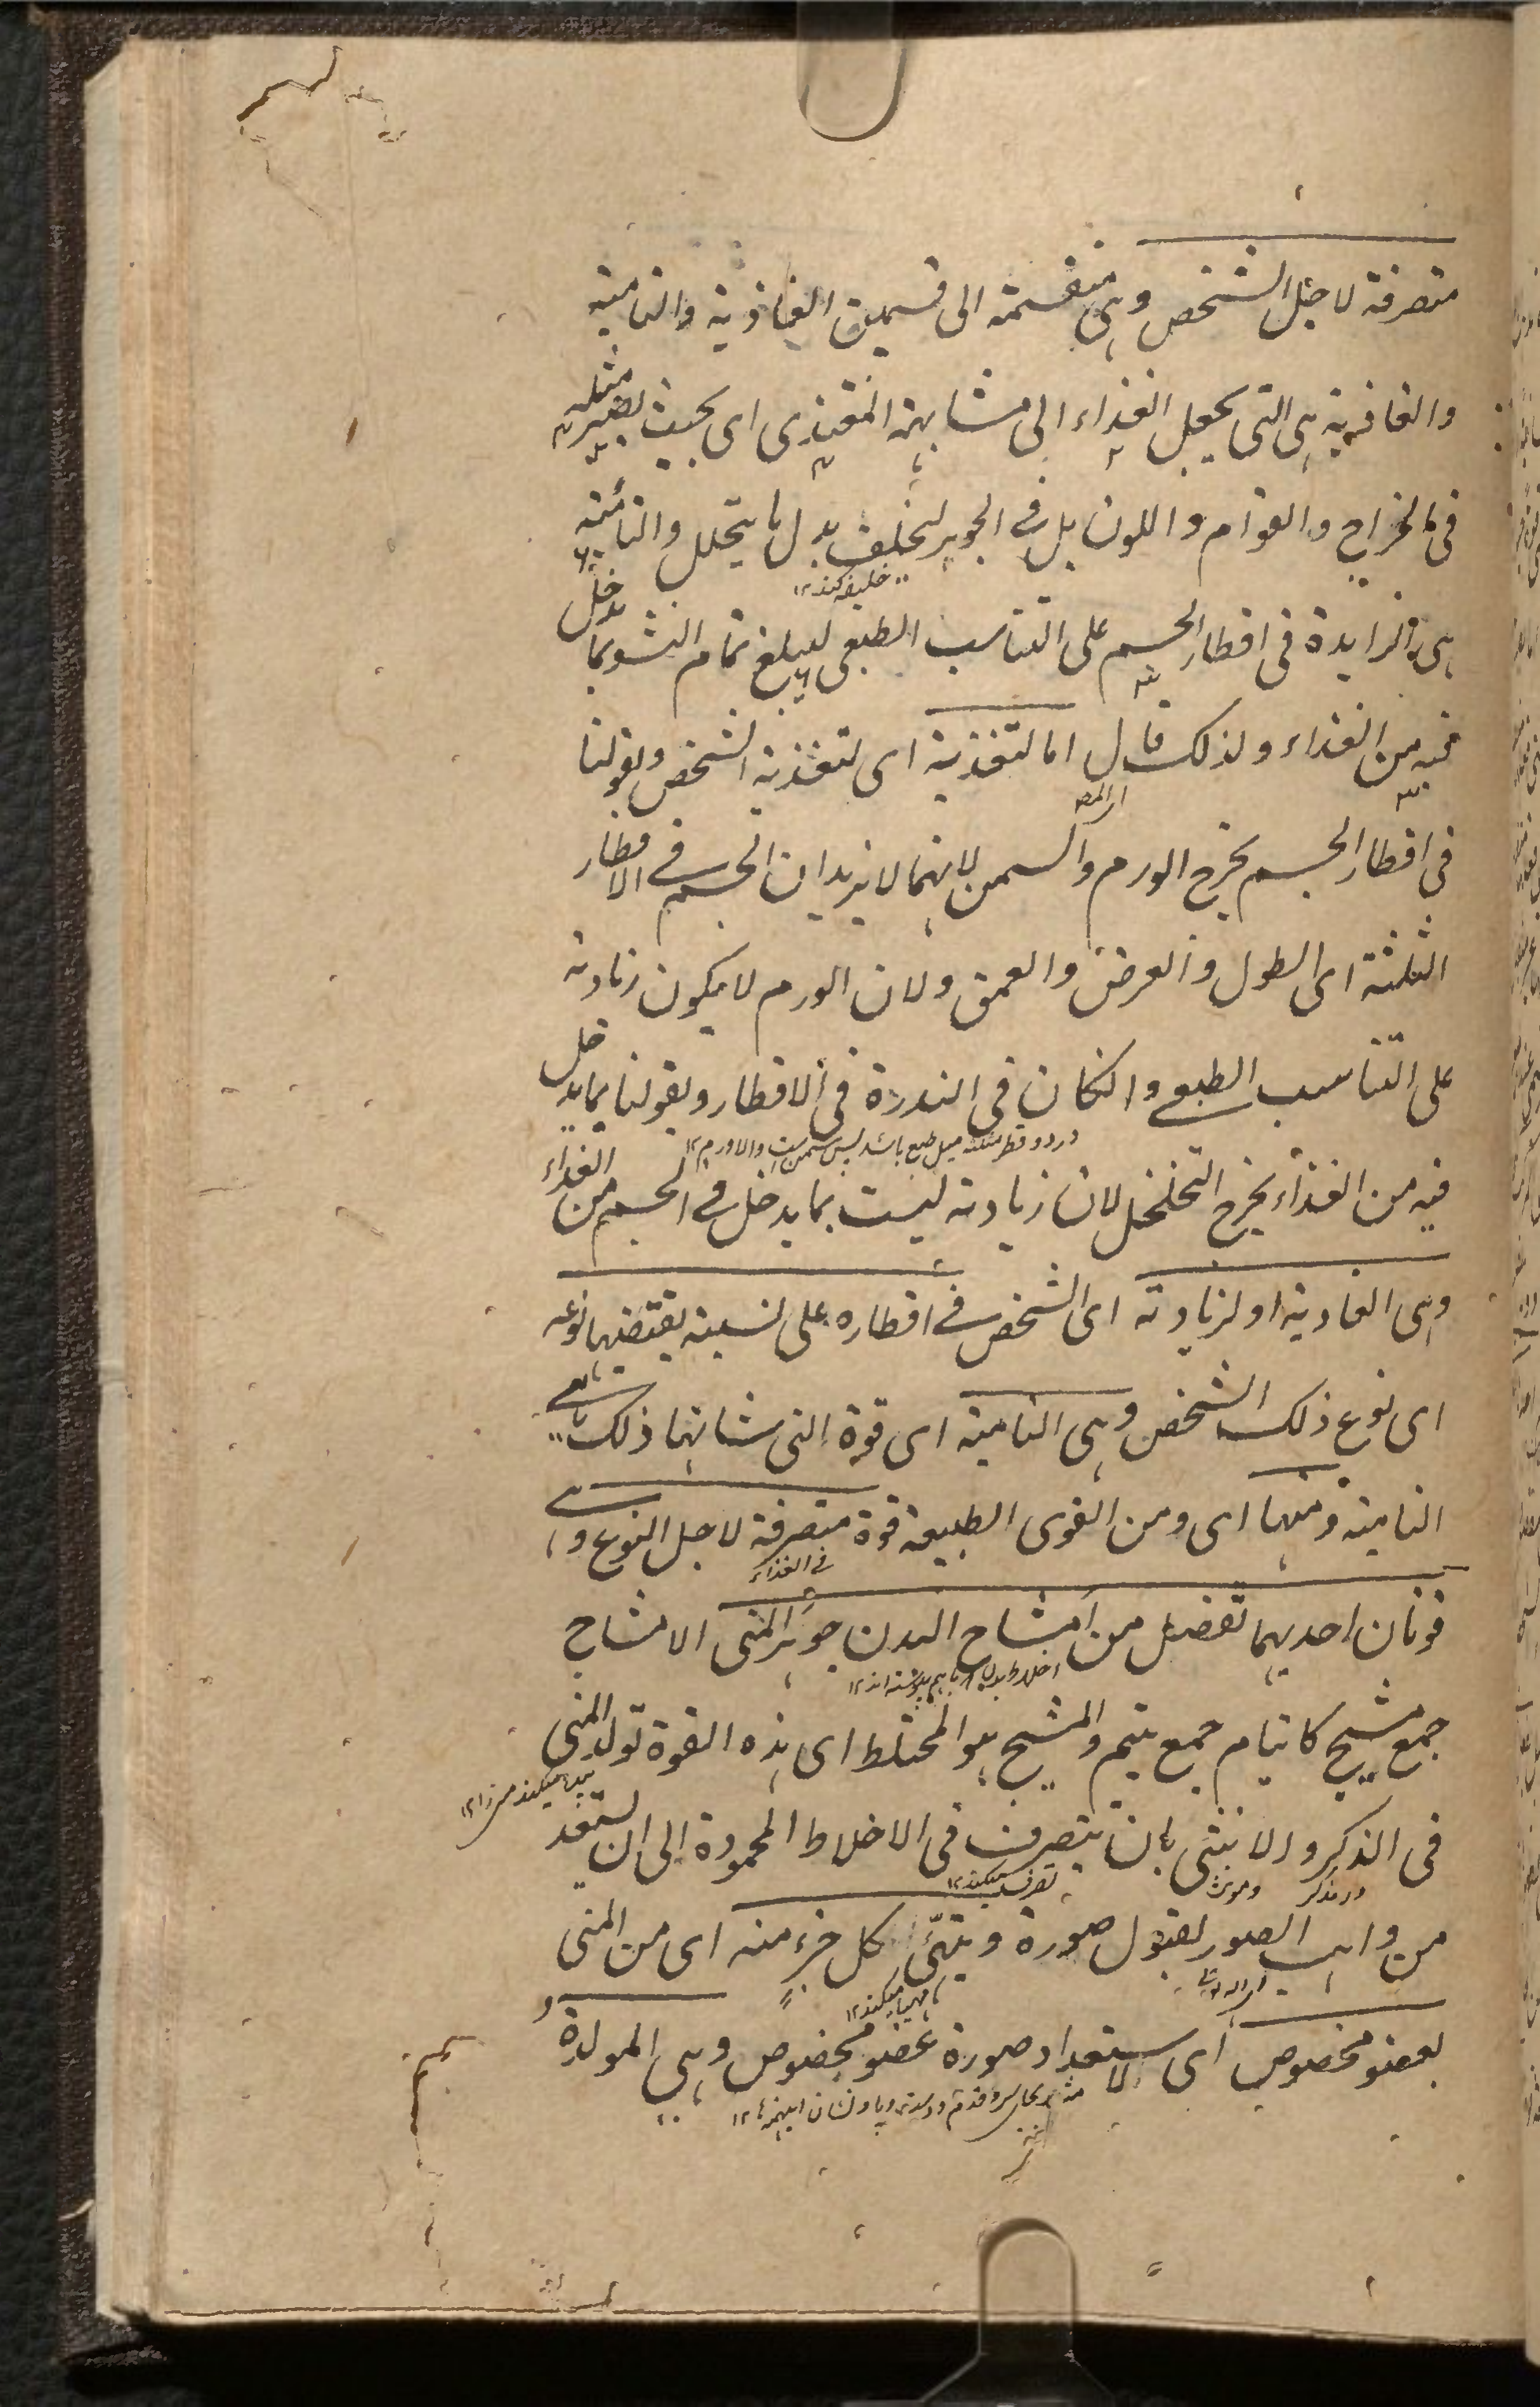 متصرفة لاجل الشخص وهى منقسمة الى قسمين الغاذية والنامية
والغاذية هى التى يحيل الغذاء الى مشابهة المغتذى اى بحيث يصير مثله
فى المزاج والقوام واللون بل فى الجوهر ليخلف بدل ما يتحلل والنامية
خليفه كند ۱۲
هى الزايدة فى اقطار الجسم على التناسب الطبعى ليبلغ تمام النشو بما يدخل
فيه من الغذاء ولذلك قال اما لتغذية اى لتغذية الشخص وبقولنا
اى المص
فى اقطار الجسم يخرج الورم والسمن لانهما لا يزيدان الجسم فى الاقطار
الثلثة اى الطول والعرض والعمق ولان الورم لا يكون زيادته
على التناسب الطبعى وانكان فى الندرة فى الاقطار وبقولنا بما يدخل
در دو قطر مثلا ميل طبع باشد پس سمن ست والا ورم ۱۲
فيه من الغذاء يخرج التخلخل لان زيادته ليست بما يدخل فى الجسم من الغذاء
وهى الغاذية او لزيادته اى الشخص فى اقطاره على نسبة يقتضيها نوعه
اى نوع ذلك الشخص وهى النامية اى قوة التى شانها ذلك
النامية ومنها اى ومن القوى الطبيعة قوة متصرفة لاجل النوع وهى
فى الغذاء
قوتان احديهما تفصل من امشاج البدن جوهر المنى الامشاج
اخلاط بدن كه باهم پيوسته اند ۱۲
جمع مشيج كايتام جمع يتيم والمشيج هو المختلط اى هذه القوة تولد المنى
پيدا ميكند منى را ۱۲
فى الذكر والانثى بان يتصرف فى الاخلاط المحمودة الى ان يستعد
در مذكر ومونث تصرف ميكند ۱۲
من واهب الصور لقبول صورة ويهيّئ كل جزء منه اى من المنى
مهيا ميكند ۱۲
لعضو مخصوص اى لاستعداد صورة عضو مخصوص وهى المولدة و